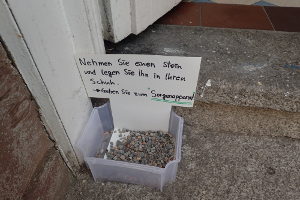 Nehmen Sie einen Stein
und legen Sie ihn in Ihren
Schuh.
→ Gehen Sie zum "Sorgenapparat"